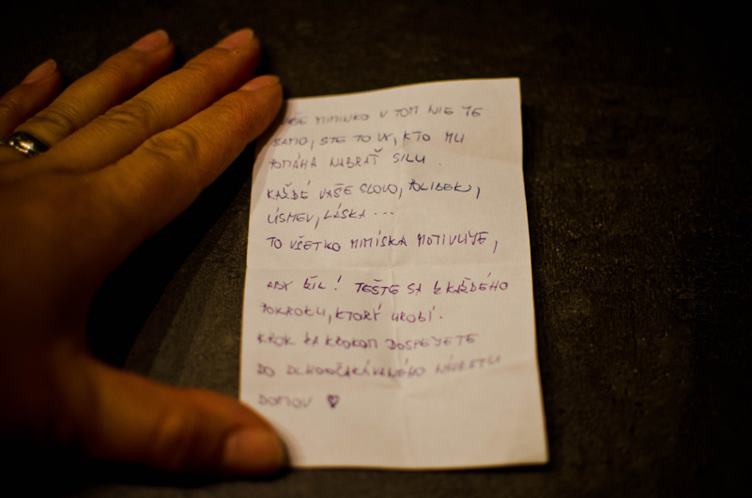 VAŠE MIMINKO V TOM NIE JE
SAMO, STE TO VY, KTO MU
POMÁHA NABRAŤ SILU.
KAŽDÉ VAŠE SLOVO, POLIBEK,
ÚSMEV, LÁSKA ...
TO VŠETKO MIMÍSKA MOTIVUJE,
ABY ŽIL! TEŠTE SA Z KAŽDÉHO
POKROKU, KTORÝ UROBÍ.
KROK ZA KROKOM DOSPEJETE
DO DLHOOČAKÁVANÉHO NÁVRATU
DOMOV ♥